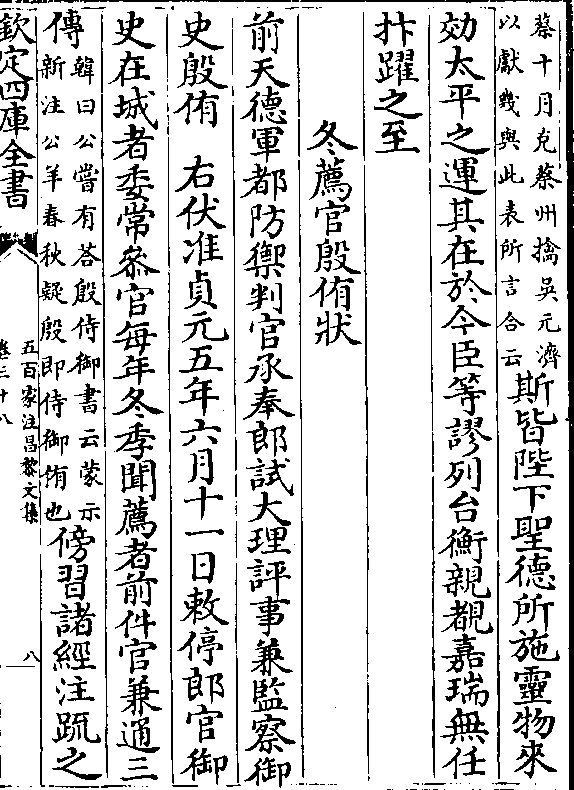 蔡十月克蔡州擒吳元濟
以獻幾與此表所言合云
斯皆陛下聖德所施靈物來
効太平之運其在於今臣等謬列台衡親覩嘉瑞無任
抃躍之至
冬薦官殷侑狀
前天德軍都防禦判官承奉郎試大理評事兼監察御
史殷侑 右伏准貞元五年六月十一日敕停郎官御
史在城者委常叅官每年冬季聞薦者前件官兼通三
傳
韓曰公嘗有荅殷侍御書云蒙示
新注公羊春秋疑殷即侍御侑也
傍習諸經注疏之
欽定四庫全書
五百家注昌黎文集
卷三十八
八